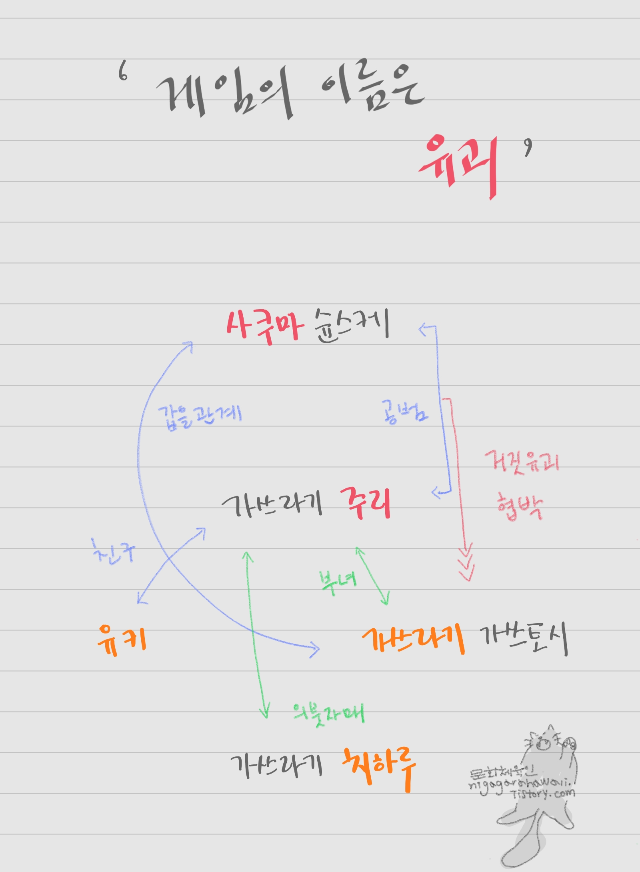 ‘ 게임의 이름은
유괴 ’
사쿠마 슌스케
갑을관계
공범
거짓유괴
협박
가쓰라기 주리
친구
부녀
유키
가쓰라기 가쓰토시
의붓자매
가쓰라기 치하루
문화체육인
nigagarahawaii.
Tistory.com